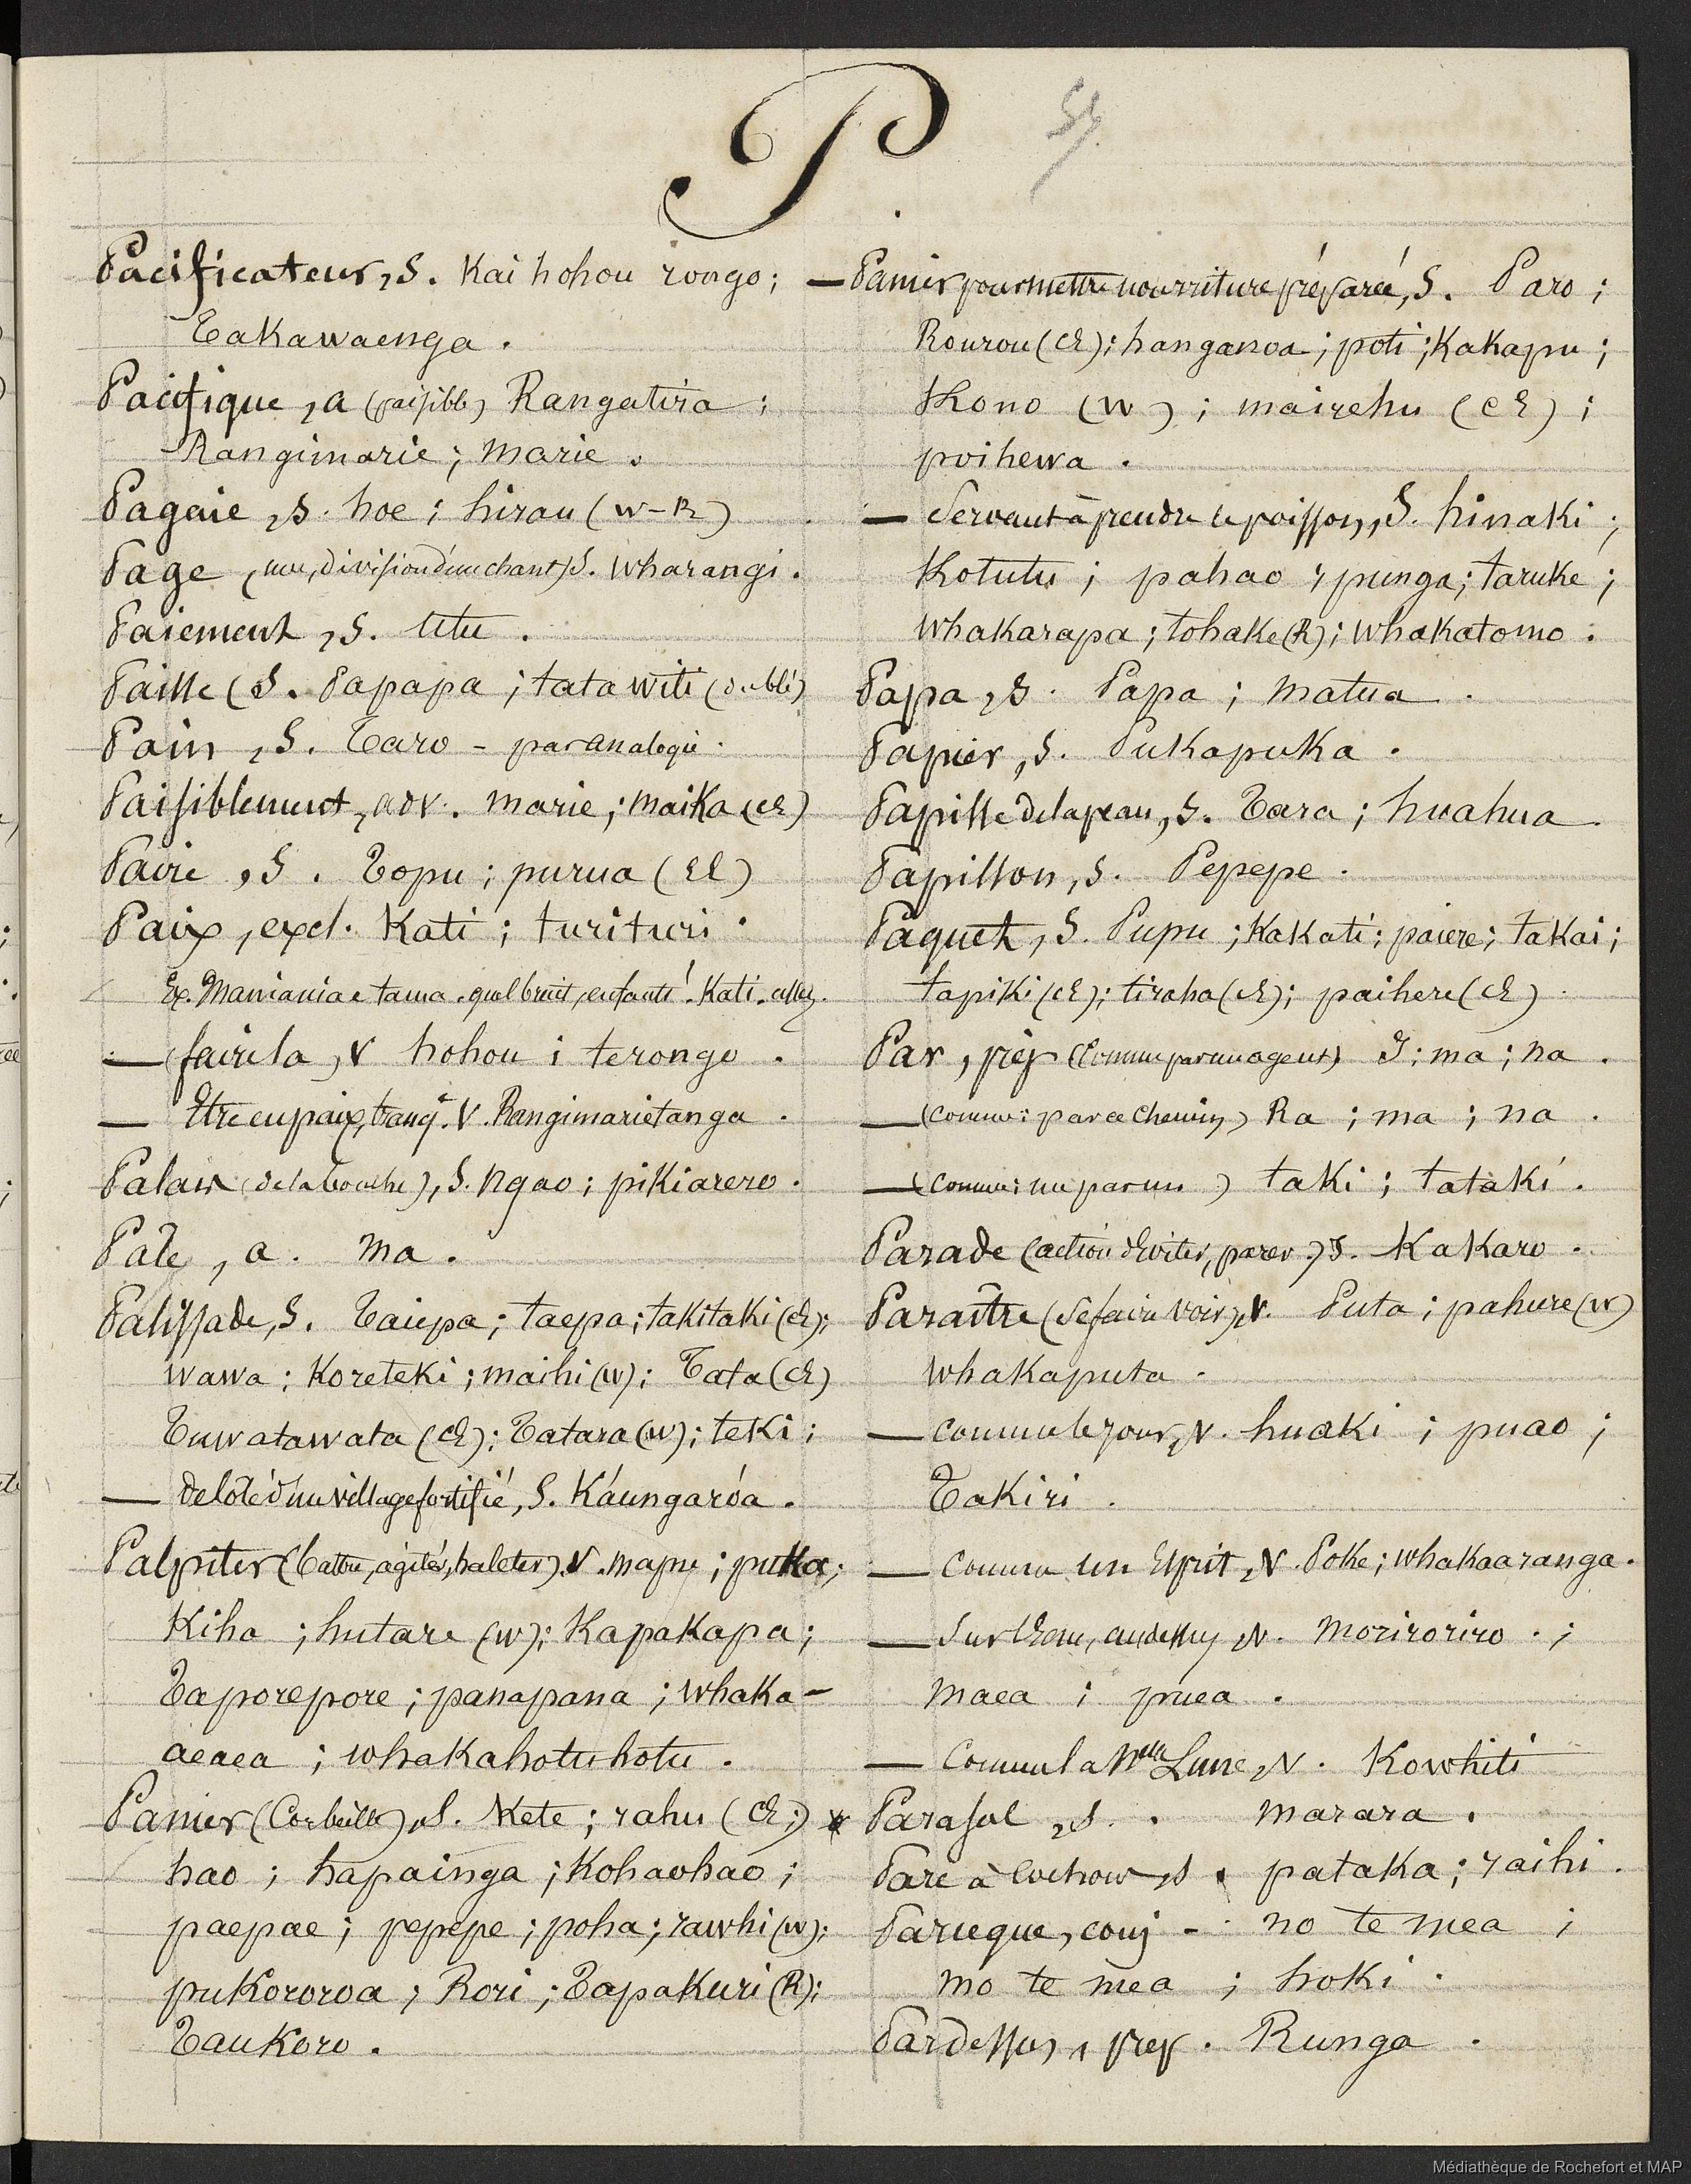 P
Pacificateur, S. Kai hohou rongo;
Takawaenga.
Pacifique, a (paisible) Rangatira;
Rangimarie; marie.
Pagaie, S. hoe; hirau (W-R)
Page, une, division d'un chant) S. Wharangi.
Paiement, S. Utu.
Paille (S. Papapa; tata witi (du blé)
Pain, S. Taro - par analogie.
Paisiblement, adv. marie; maika (CE)
Paire, S. Topu; purua (CE)
Paix, excl. Kati; turituri.
Ex. Maniania e tama. quel bruit, enfants! Kati. assez.
— faire la, V hohou i terongo.
— Etre en paix, tranq. V. Rangimarietanga.
Palais (de la bouche), S. Ngao; pikiarero.
Pale, a. ma.
Palissade, S. Taiepa; taepa; takitaki (CE);
wawa; Koreteki; maihi (W); Tata (CE)
Tuwatawata (CE); Tatara (W); teki;
— de côté d'un village fortifié, S. Káungaróa.
Palpiter (battre, agiter, haleter) V. mapu; puka;
Kiha; hutare (W); Kapakapa;
Taporepore; panapana; whaka-
aeaea; whakahotuhotu.
Panier (Corbeille), S. Kete; rahu (CE;)
hao; hapainga; Kohaohao;
paepae; pepepe; poha; rawhi (W);
pukororoa; Rori; Tapakuri (R);
Taukoro.
— Panier pour mettre nourriture préparée, S. Paro;
Rourou (CE); hanganoa; poti; Kakapu;
Kono (W); mairehu (CE);
poihewa.
— Servant à prendre le poisson, S. hinaki;
Kotutu; pahao; punga; taruke;
whakarapa; tohake (R); whakatomo.
Papa, S. Papa; matua.
Papier, S. Pukapuka.
Papille de la peau, S. Tara; huahua.
Papillon, S. Pepepe.
Paquet, S. Pupu; Kakati; paiere; takai;
tapiki (CE); tiraha (CE); paihere (CE)
Par, prép (Comme par un agent) I; ma; na.
— (comme: par ce chemin) Ra; ma; na.
— (comme: un par un) taki; tataki.
Parade (action d'éviter, parer.) S. Kakaro.
Paraître (se faire voir), V. Puta; pahure (W)
whakaputa.
— comme le jour, V. huaki; puao;
Takiri.
— Comme un Esprit, V. Poke; whakaaranga.
— Sur l'Eau, au dessus, V. moriroriro.;
maea; puea.
— Comme la Nelle Lune, V. Kowhiti
* Parasol, S. marara.
Parc à Cochons, S. pataka; raihi.
Parceque, conj - no te mea;
mo te mea; hoki.
Pardessus, prep. Runga.
Médiathèque de Rochefort et MAP